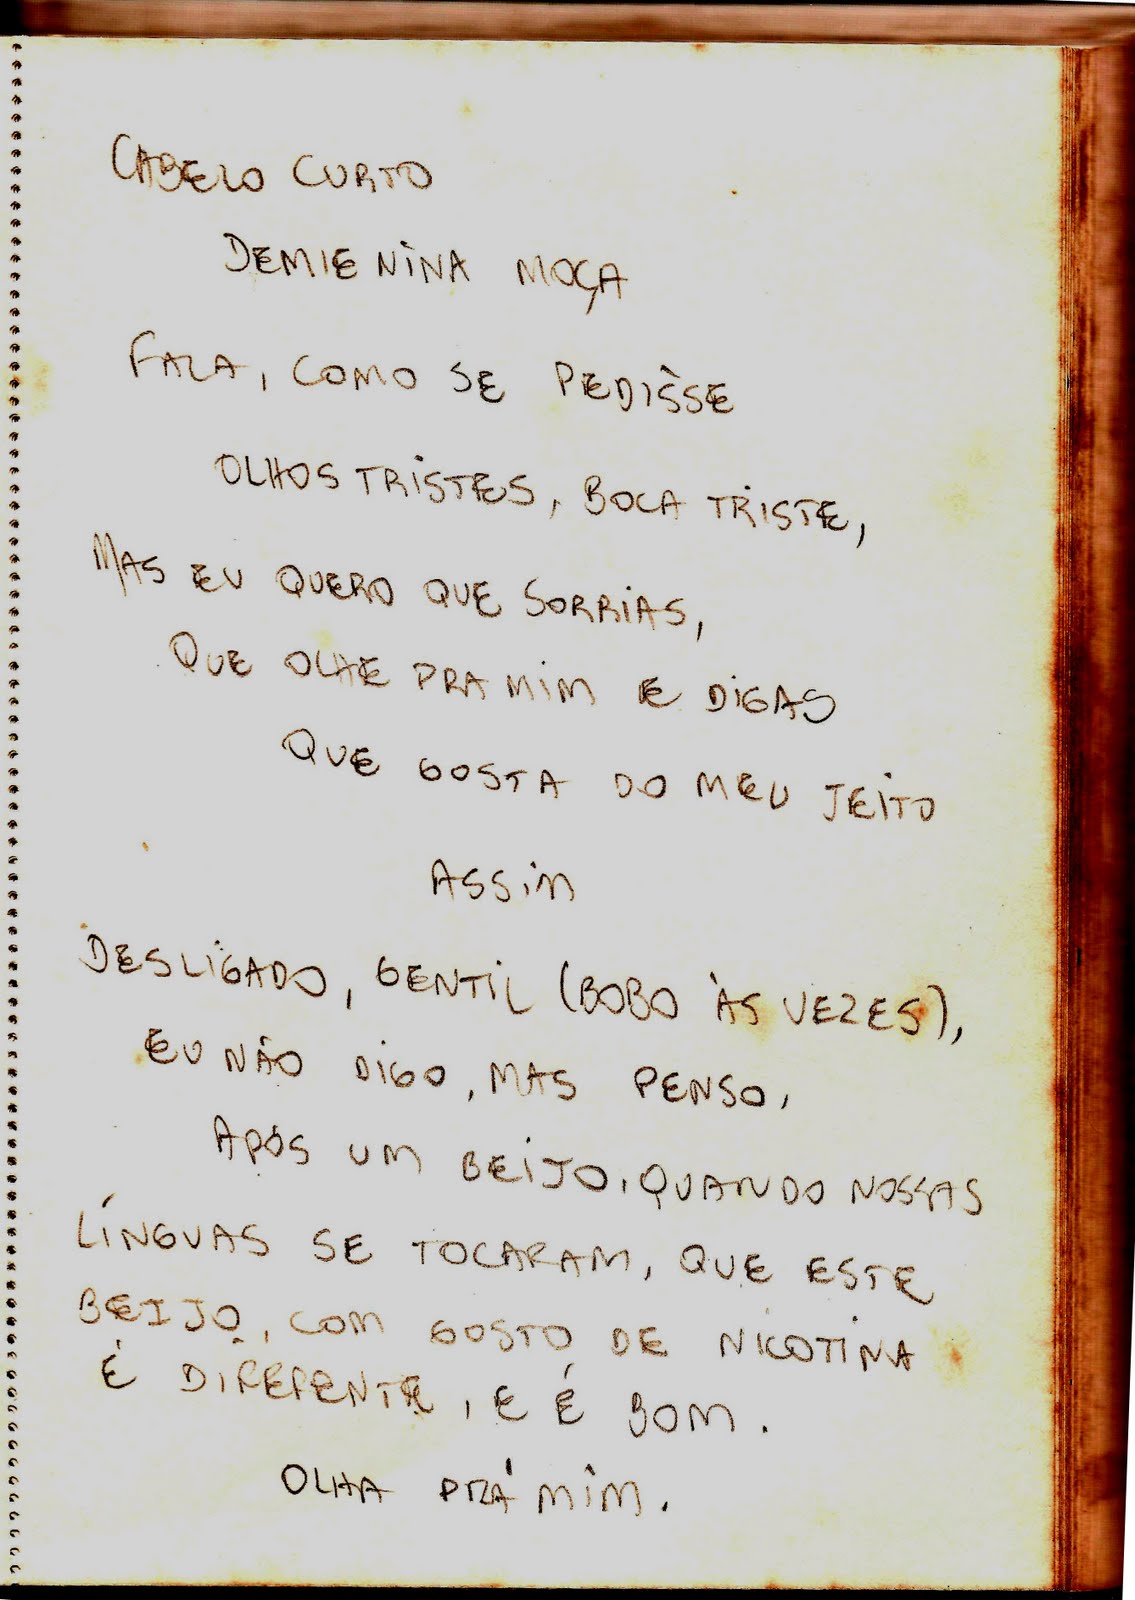 CABELO CURTO
DEMIENINA MOÇA
FALA, COMO SE PEDISSE
OLHOS TRISTES, BOCA TRISTE,
MAS EU QUERO QUE SORRIAS,
QUE OLHE PRA MIM E DIGAS
QUE GOSTA DO MEU JEITO
ASSIM
DESLIGADO, GENTIL (BOBO ÀS VEZES),
EU NÃO DIGO, MAS PENSO,
APÓS UM BEIJO, QUANDO NOSSAS
LÍNGUAS SE TOCARAM, QUE ESTE
BEIJO, COM GOSTO DE NICOTINA
É DIFERENTE, E É BOM.
OLHA PRÁ MIM.